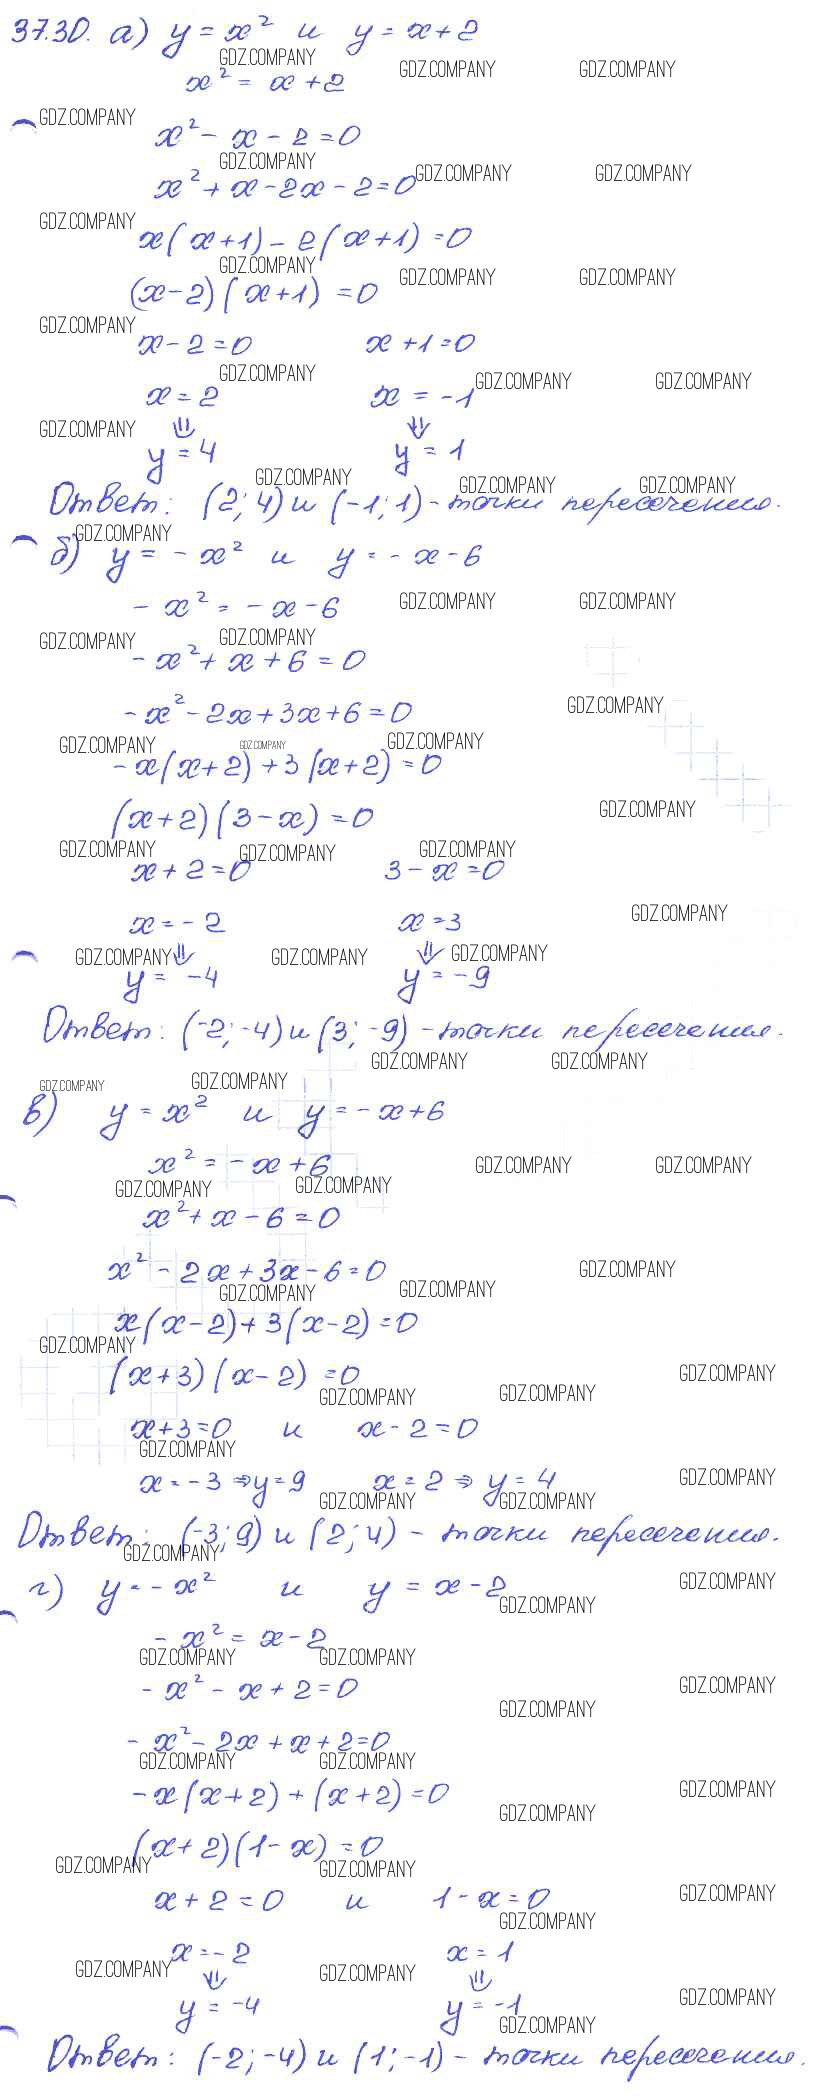 37.30. а) y = x² и y = x+2
x² = x+2
x² - x - 2 = 0
x² + x - 2x - 2 = 0
x(x+1) - 2(x+1) = 0
(x-2)(x+1) = 0
x - 2 = 0 x + 1 = 0
x = 2 x = -1
⇓ ⇓
y = 4 y = 1
Ответ: (2; 4) и (-1; 1) - точки пересечения.
б) y = - x² и y = - x - 6
- x² = - x - 6
- x² + x + 6 = 0
- x² - 2x + 3x + 6 = 0
- x(x+2) + 3(x+2) = 0
(x+2)(3-x) = 0
x + 2 = 0 3 - x = 0
x = - 2 x = 3
⇓ ⇓
y = -4 y = -9
Ответ: (-2; -4) и (3; -9) - точки пересечения.
в) y = x² и y = - x + 6
x² = - x + 6
x² + x - 6 = 0
x² - 2x + 3x - 6 = 0
x(x-2) + 3(x-2) = 0
(x+3)(x-2) = 0
x+3 = 0 и x - 2 = 0
x = - 3 ⇒ y = 9 x = 2 ⇒ y = 4
Ответ: (-3; 9) и (2; 4) - точки пересечения.
г) y = - x² и y = x - 2
- x² = x - 2
- x² - x + 2 = 0
- x² - 2x + x + 2 = 0
- x(x+2) + (x+2) = 0
(x+2)(1-x) = 0
x + 2 = 0 и 1 - x = 0
x = - 2 x = 1
⇓ ⇓
y = -4 y = -1
Ответ: (-2; -4) и (1; -1) - точки пересечения.
GDZ.COMPANY